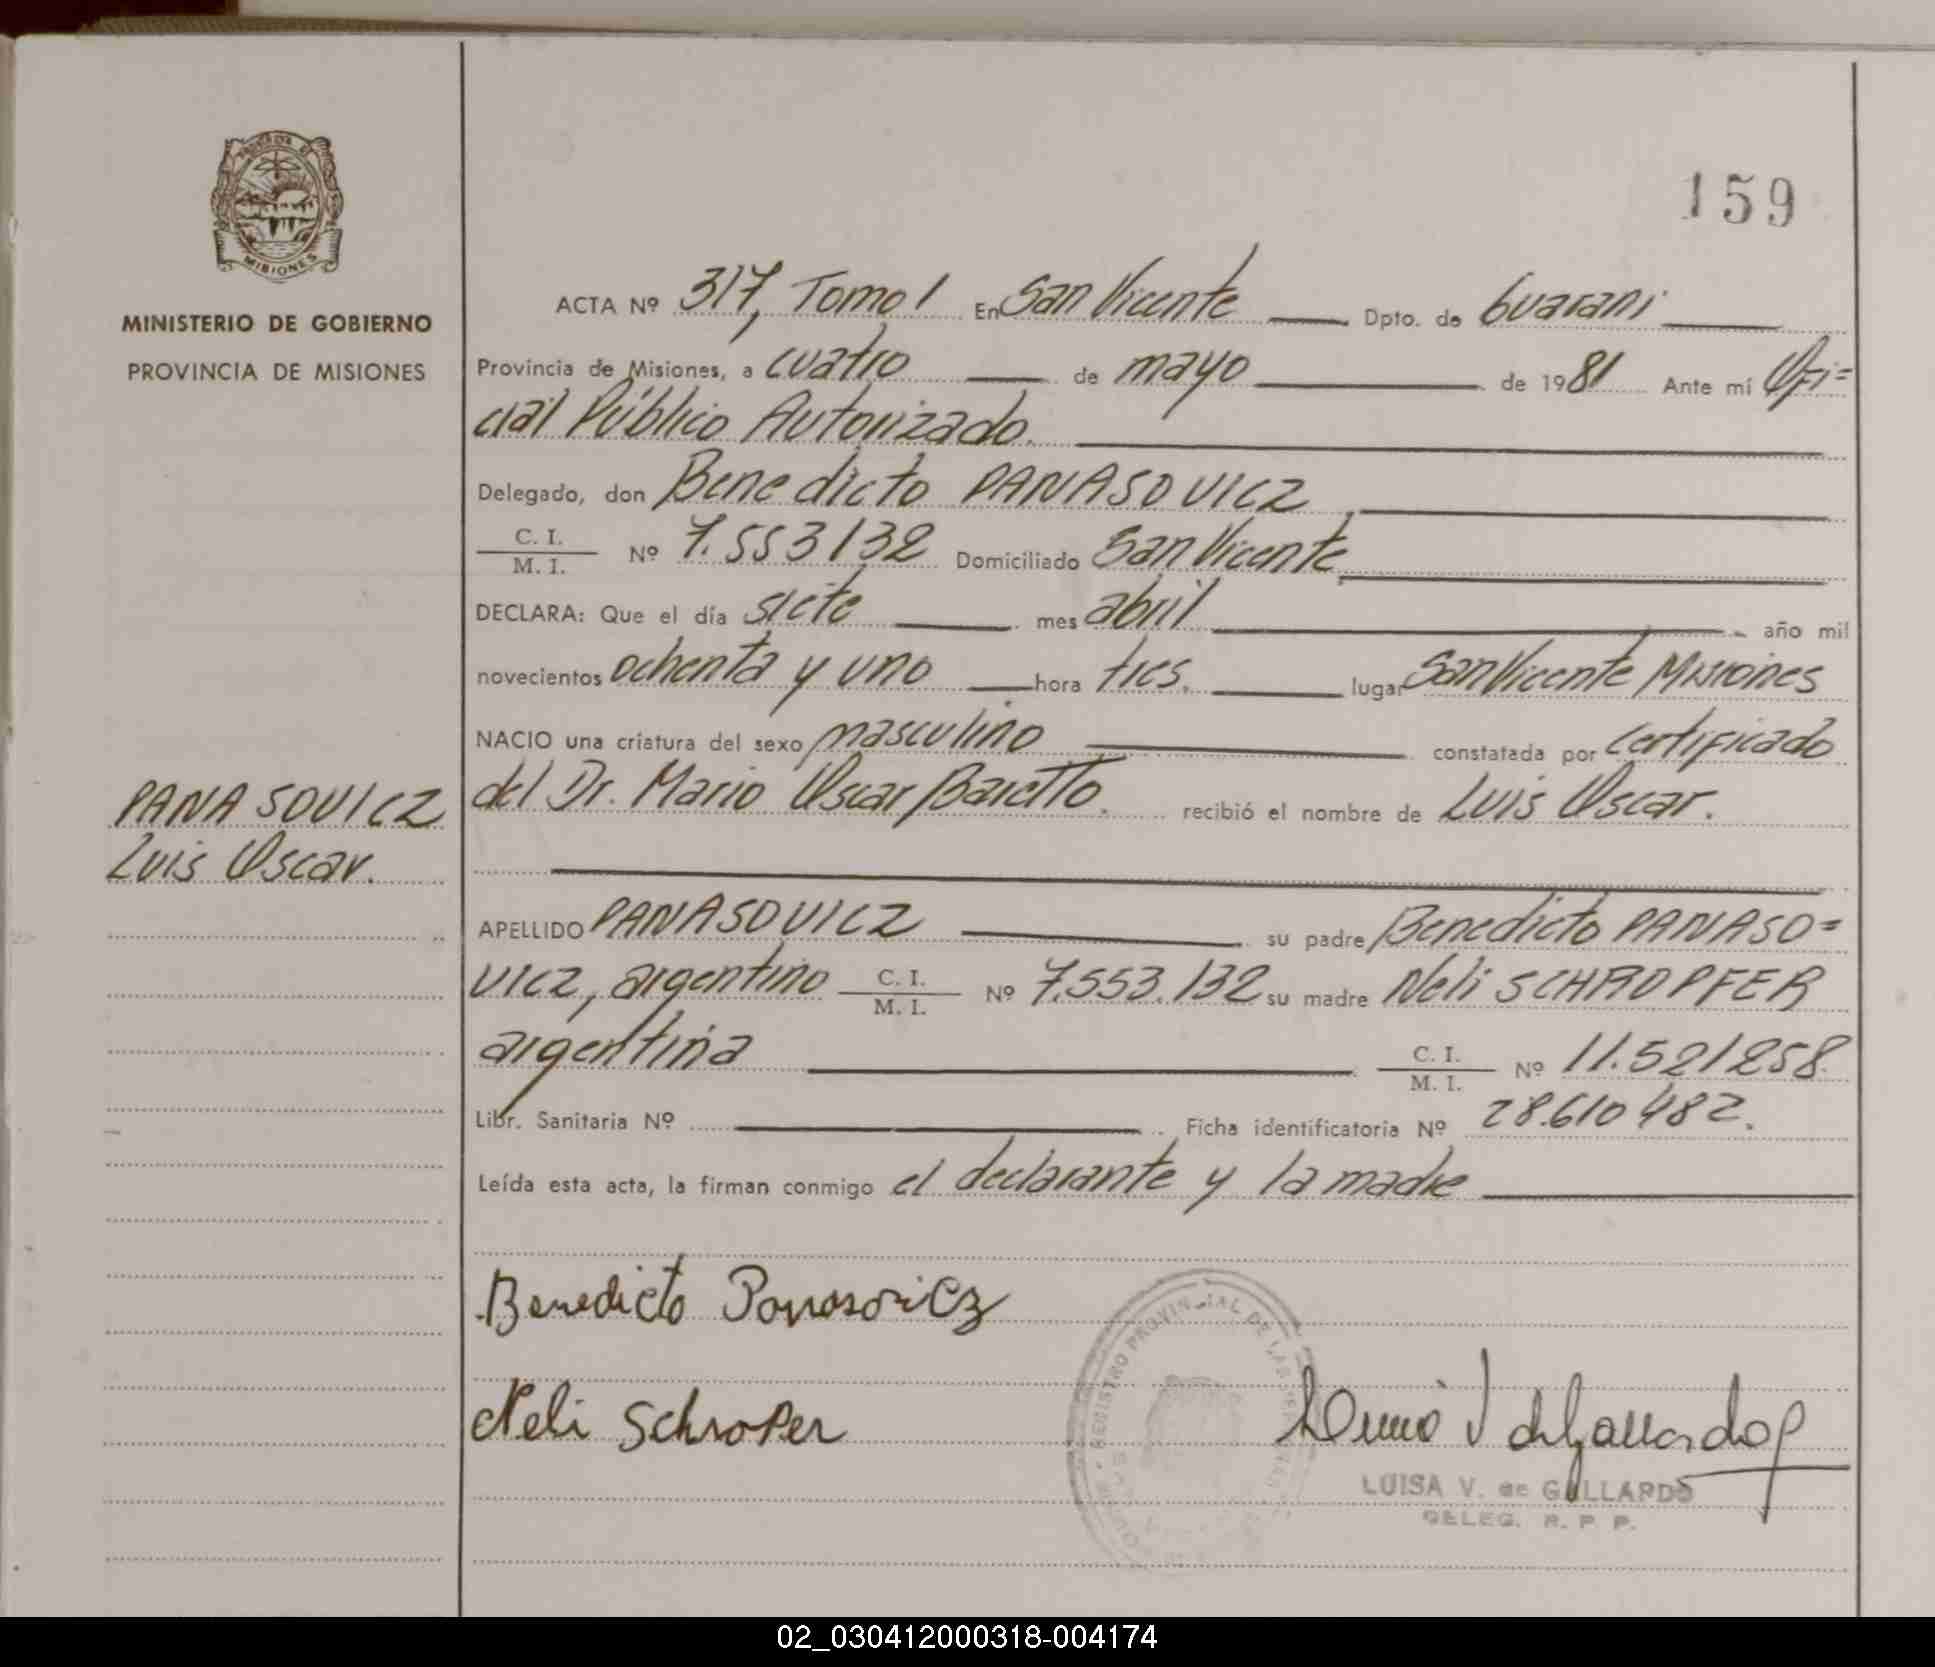 159
MISIONES
MINISTERIO DE GOBIERNO
PROVINCIA DE MISIONES
ACTA Nº 317, Tomo 1 En San Vicente Dpto. de Guaraní
Provincia de Misiones, a cuatro de mayo de 1981 Ante mí Ofi=
cial Público Autorizado.
Delegado, don Benedicto PANASOVICZ,
C. I.
M. I. Nº 7.553132 Domiciliado San Vicente,
DECLARA: Que el día siete mes abril año mil
novecientos ochenta y uno hora tres. lugar San Vicente Misiones
NACIO una criatura del sexo masculino constatada por certificado
del Dr. Mario Oscar Baretto. recibió el nombre de Luis Oscar.
PANASOVICZ
Luis Oscar.
APELLIDO PANASOVICZ su padre Benedicto PANASO=
VICZ, argentino C. I.
M. I. Nº 7.553.132 su madre Neli SCHROPFER
argentina C. I.
M. I. Nº 11.521258
Libr. Sanitaria Nº Ficha identificatoria Nº 28.610482.
Leída esta acta, la firman conmigo el declarante y la madre
Benedicto Panasovicz
Neli Schroper
REGISTRO PROVINCIAL DE LAS PERSONAS
LUISA V. de GALLARDO
DELEG. R. P. P.
02_030412000318-004174